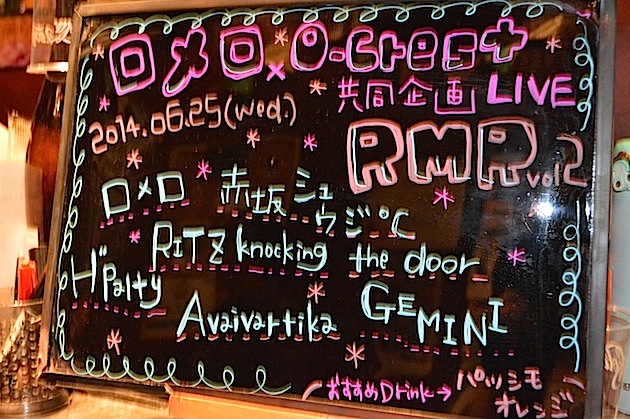 ロメロ×O-crest
共同企画 LIVE
2014.06.25(wed.)
RMR vol2
ロメロ 赤坂シュウジ℃
RITZ knocking the door
H'Party
Avaivartika GEMINI
おすすめDrink→ パッシモオレンジ